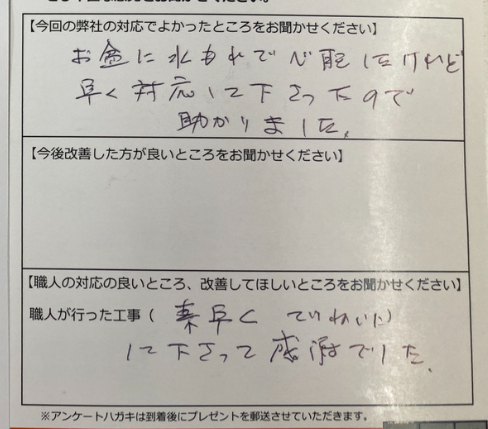 【今回の弊社の対応でよかったところをお聞かせください】
お盆に水もれで心配したけれど
早く対応して下さったので
助かりました.
【今後改善した方が良いところをお聞かせください】
【職人の対応の良いところ、改善してほしいところをお聞かせください】
職人が行った工事（素早くていねいに）
して下さって感謝でした.
※アンケートハガキは到着後にプレゼントを郵送させていただきます。